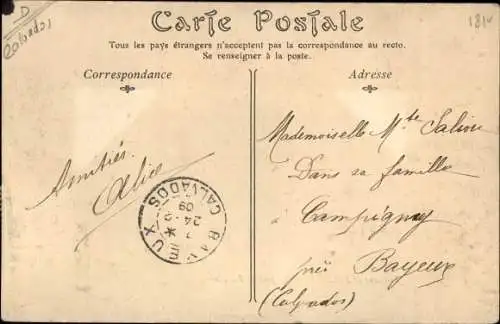 D
Calvados
Carte Postale
Tous les pays étrangers n'acceptent pas la correspondance au recto.
Se renseigner à la poste.
Correspondance
Adresse
Amitiés
Alice
BAYEUX
CALVADOS
24
09
Mademoiselle Mte
Dans sa famille
à
Campigny
près Bayeux
(Calvados)